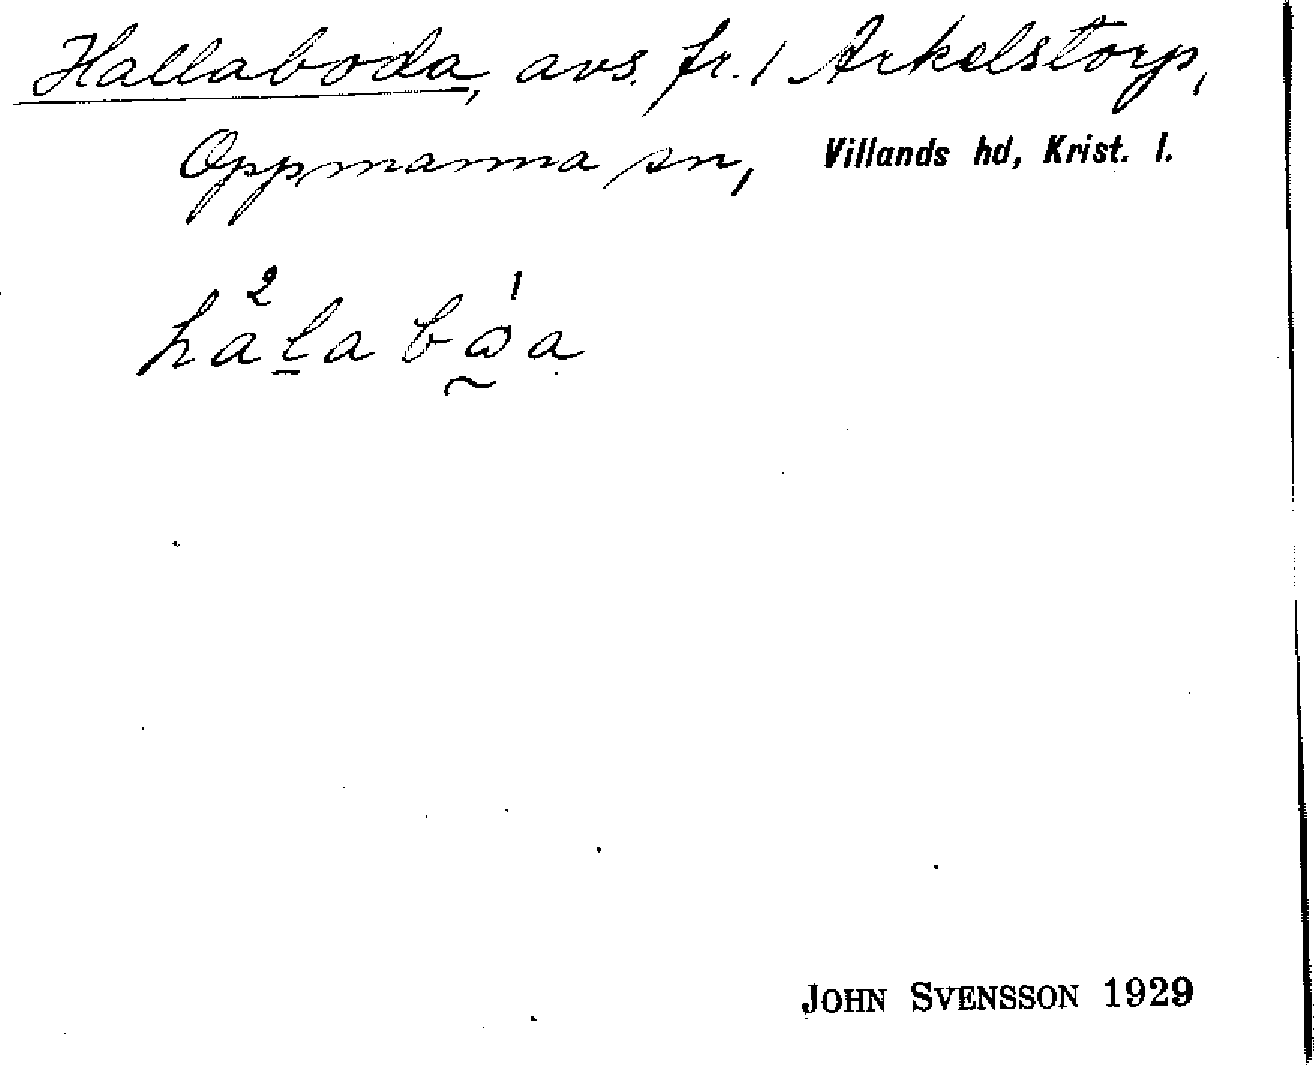 Hallaboda, avs. fr. 1 Arkelstorp,
Oppmanna sn, Villands hd, Krist. l.
2 1
hala bωa
JOHN SVENSSON 1929